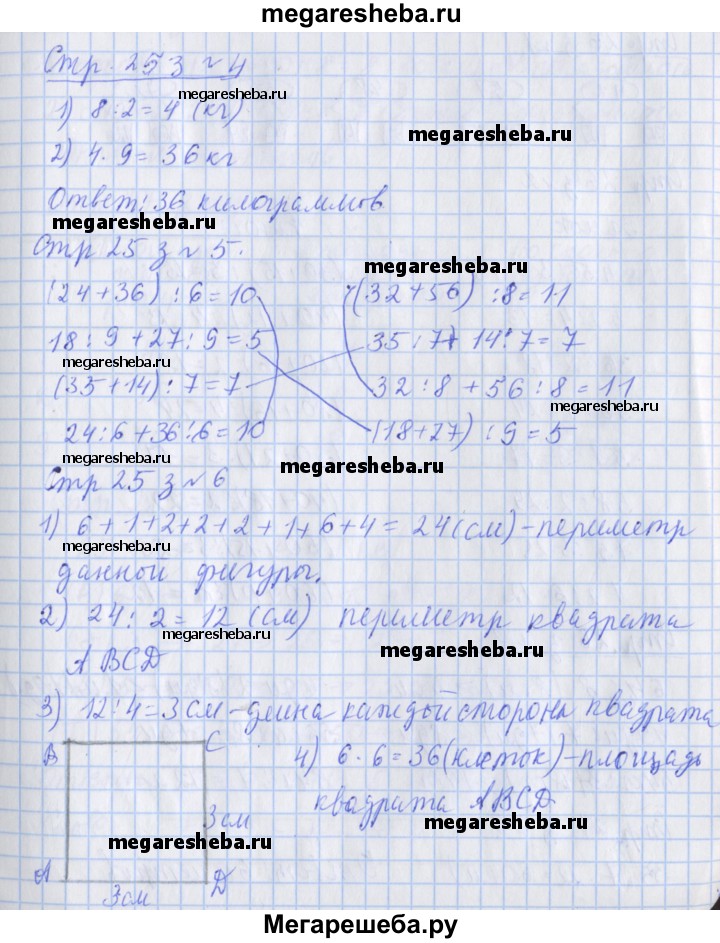 megaresheba.ru
Стр. 25 з ~ 4
megaresheba.ru
1) 8:2=4 (кг)
megaresheba.ru
2) 4·9=36 кг
Ответ: 36 килограммов
megaresheba.ru
Стр 25 з ~ 5.
megaresheba.ru
(24+36) :6=10 (32+56) :8=11
18:9+27:9=5 35:7+14:7=7
megaresheba.ru
(35+14):7=7 32:8+56:8=11
megaresheba.ru
24:6+36:6=10 (18+27) :9=5
megaresheba.ru
megaresheba.ru
Стр 25 з ~ 6
1) 6+1+2+2+2+1+6+4=24(см)-периметр
megaresheba.ru
данной фигуры.
2) 24:2=12 (см) периметр квадрата
megaresheba.ru
megaresheba.ru
ABCD
3) 12:4=3см-длина каждой стороны квадрата
B C 4) 6·6=36(клеток)-площадь
квадрата ABCD
3см
megaresheba.ru
megaresheba.ru
A D
3см
Мегарешеба.ру